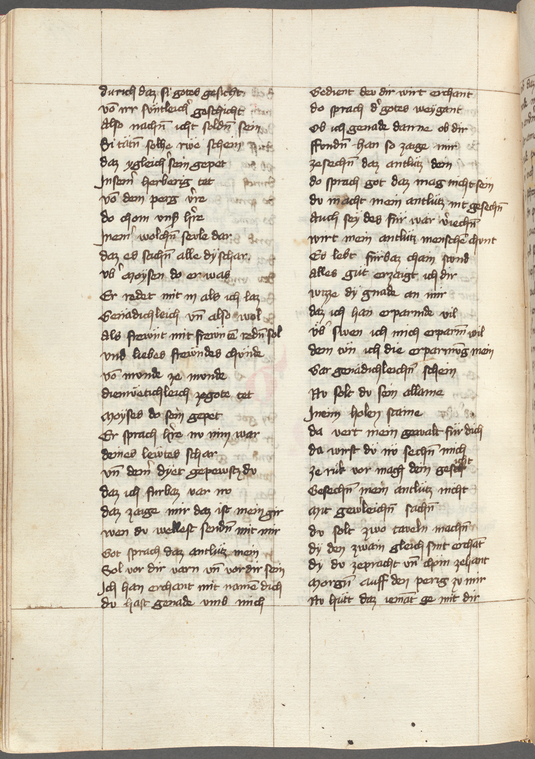 durich daz si gotes gesicht
vō irr süntleich' geschicht
Also nachn̄ icht soldn̄ sein
Di tätn̄ solhe rwe schein
daz ygleich' sein gepet
Jn seinē herberig tet
vō dem perg v're
do chom vnß h're
Jn einē wolchn̄ sevle dar
daz es sachn̄ alle dy schar
vb' moysen do er was
Er redet mit im als ich laz
Genädichleich vn̄ also wol
Als frewnt mit frewnt redn̄ sol
vnd liebes frewndes chünde
vō munde ze munde
diemüetichleich ze gote tet
Moyses do sein gepet
Er sprach h're nv nim war
deines lewtes schar
vn̄ dem dyet gepewst dv
daz ich fürbaz var nv
daz zaige mir daz ist mein gir
wen dv wellest sendn̄ mit mir
Got sprach daz antlütz mein
Sol vor dir varn vn̄ vor dir sein
Jch han erchant mit namē dich
dv hast genade vmb mich
Gedient dev dir wirt erchant
do sprach d' gotes weygant
Ob ich genade danne ob dir
Fundn̄ han so zaige mir
ze sechn̄ daz antlütz dein
do sprach got daz mag nicht sein
dv macht mein antlütz nit gesechn̄
Auch sey des für war v'iechn̄
wirt mein antlütz menschē chunt
Es lebt fürbaz chain stund
Alles güt erzaigt ich dir
wize dy gnade an mir
daz ich han erparmde vil
vb' swen ich mich erparm̄ wil
dem tün ich die erparmūg mein
Gar genädichleichn̄ schein
Nv solt dv sein allaine
Jn einē holen staine
da vert mein gewalt für dich
da wirst dv nv sechn̄ mich
ze rük vor mach dein gesicht
Gesechn̄ mein antlütz nicht
Mit gewleichn̄ sachn̄
dv solt zwo taveln machn̄
dy den zwain gleich sint erchāt
dy dv zepracht vn̄ chom zehant
Morgn̄ auff den perig zv mir
Nv hütt daz iemāt ge mit dir